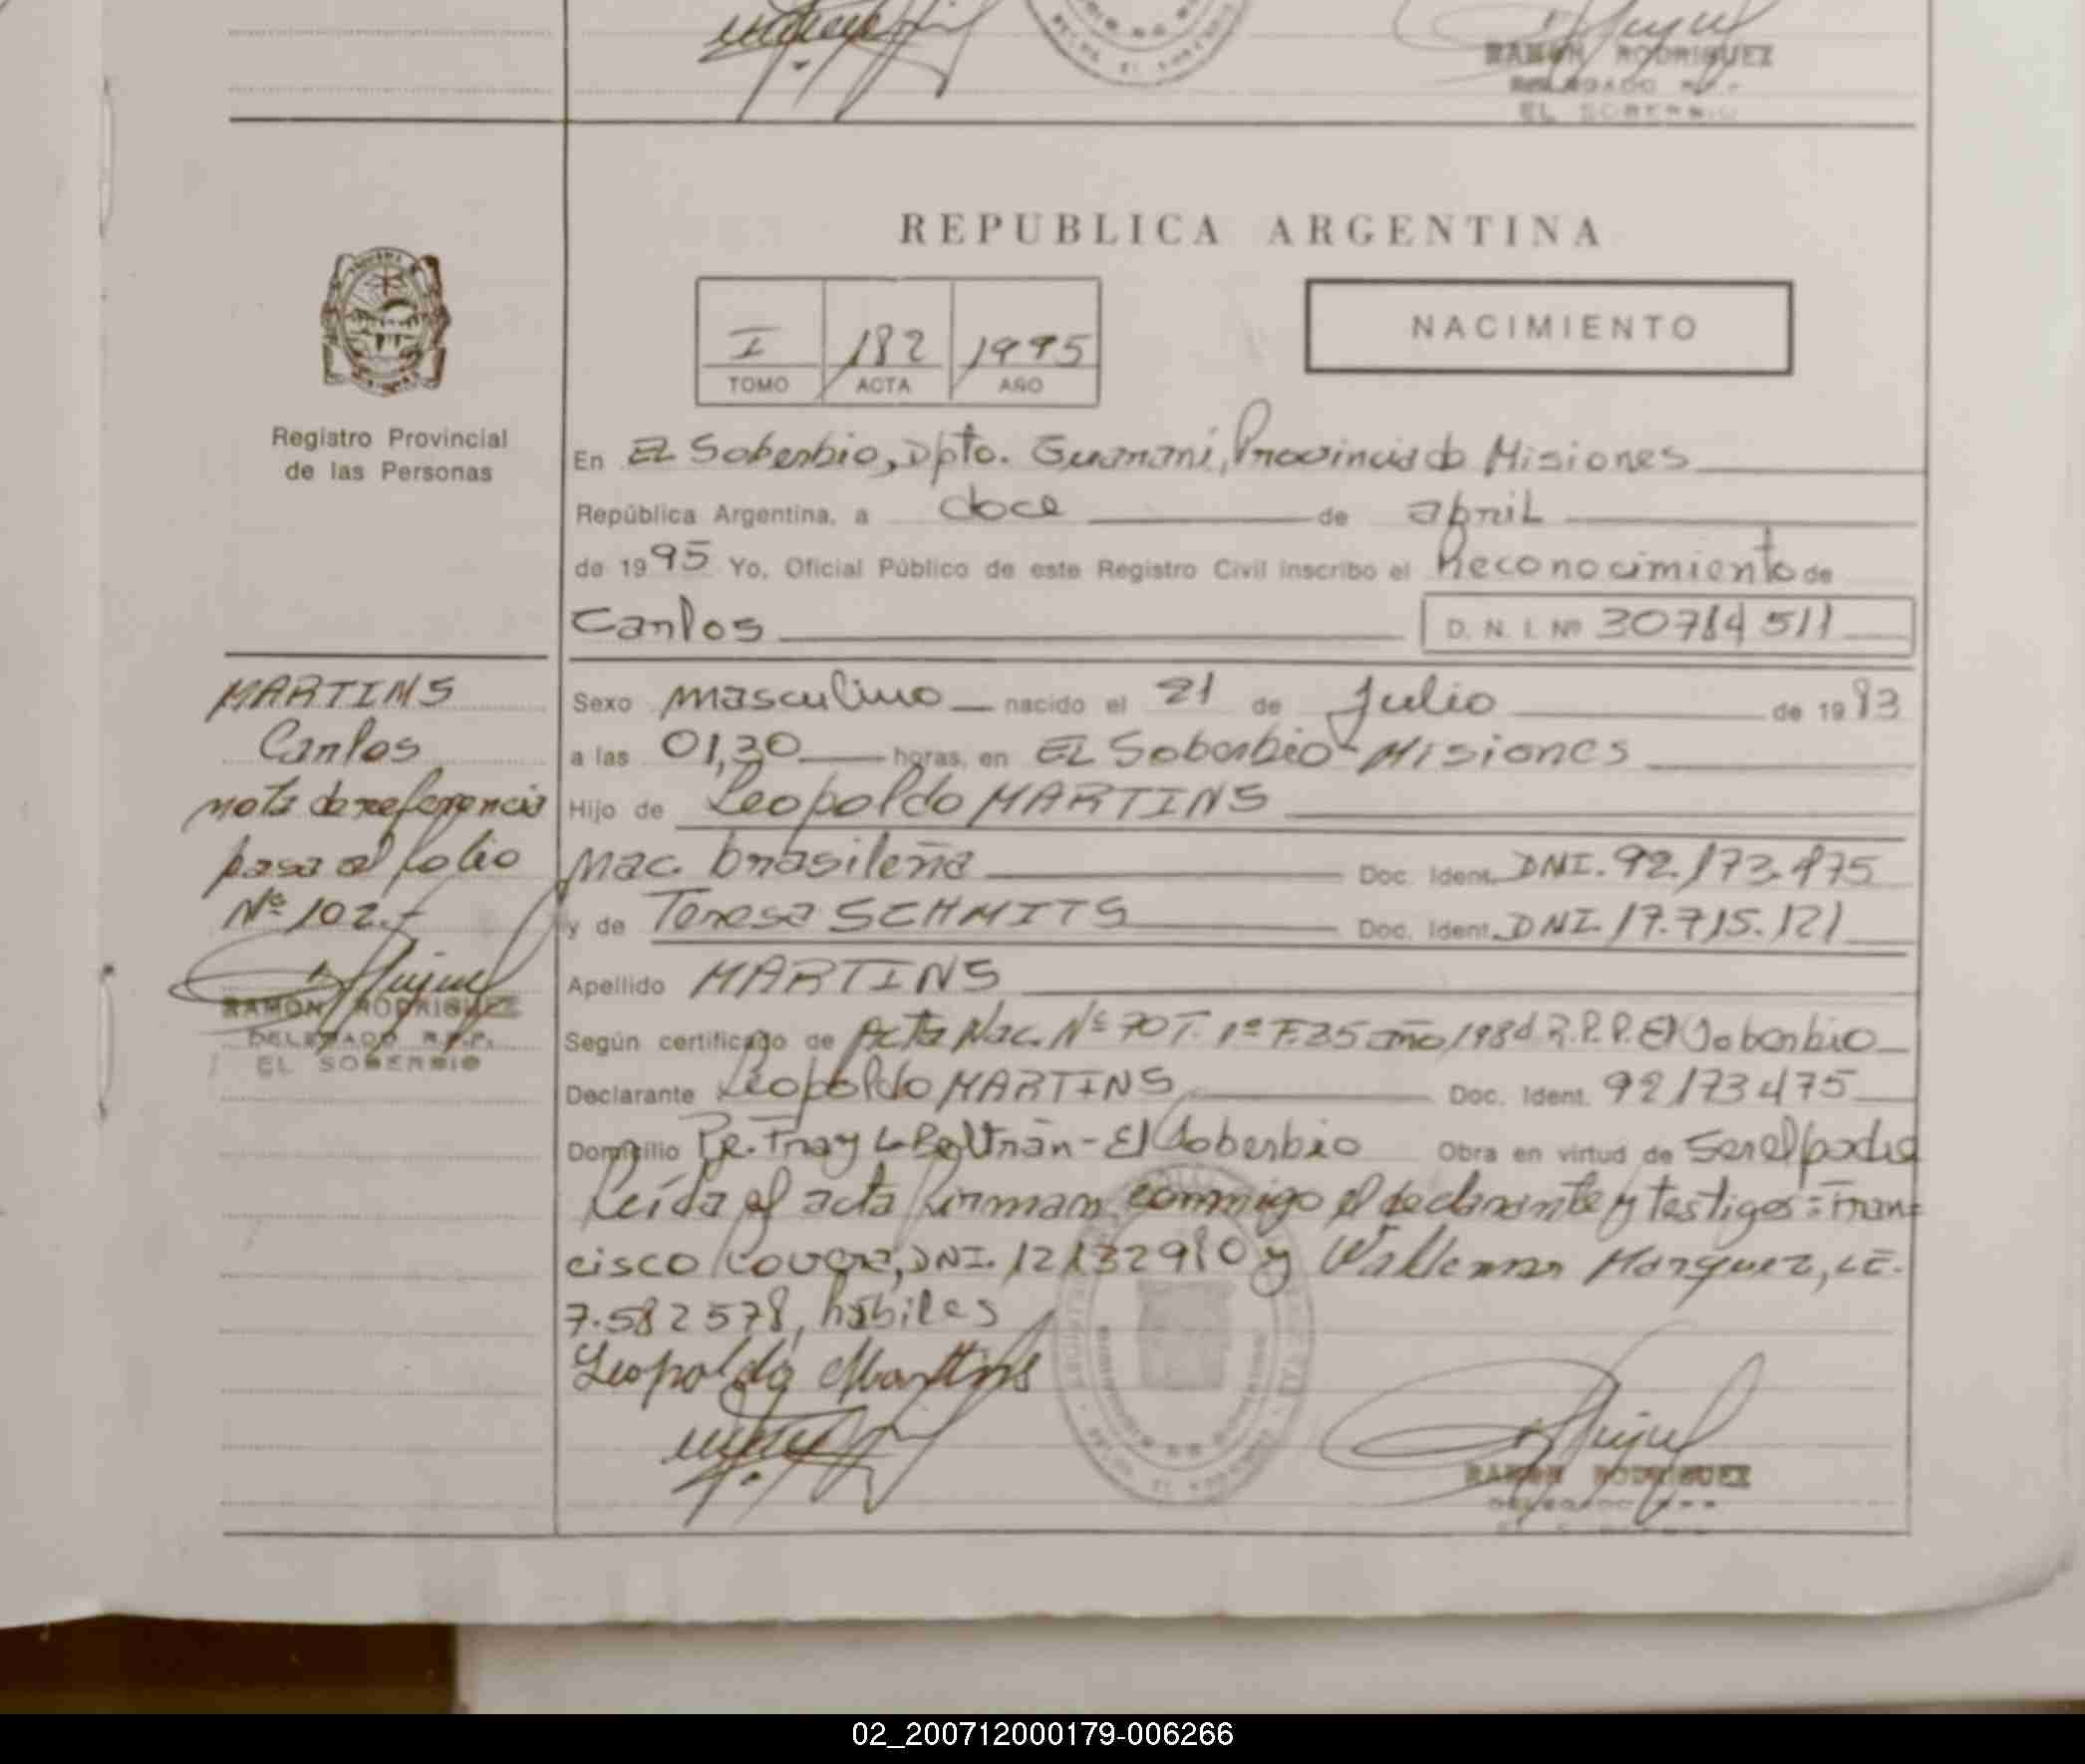 RAMON RODRIGUEZ
DELEGADO R.P.P.
EL SOBERBIO
REPUBLICA ARGENTINA
I 182 1995
TOMO ACTA AÑO
NACIMIENTO
Registro Provincial
de las Personas
En El Soberbio, Dpto. Guaraní, Provincia de Misiones
República Argentina, a doce de abril
de 1995 Yo, Oficial Público de este Registro Civil inscribo el Reconocimiento de
Carlos D. N. I. Nº 30784511
MARTINS
Carlos
nota de referencia
pasa al folio
Nº 102.-
RAMON RODRIGUEZ
DELEGADO R.P.P.
EL SOBERBIO
Sexo masculino nacido el 21 de Julio de 1983
a las 01,30 horas, en El Soberbio-Misiones
Hijo de Leopoldo MARTINS
Nac. brasileña Doc. Ident. DNI. 92.173.475
y de Teresa SCHMITS Doc. Ident. DNI. 17.715.121
Apellido MARTINS
Según certificado de Acta Nac. Nº 70 T. 1º F.35 año 1984 R.P.P. El Soberbio
Declarante Leopoldo MARTINS Doc. Ident. 92173475
Domicilio Pje. Fray L. Beltrán - El Soberbio Obra en virtud de Ser el padre
Leída el acta firman conmigo el declarante y testigos: Fran=
cisco DNI. 12132980 y Waldemar Marquez, LE.
7.582578, hábiles
Leopoldo Martins
RAMON RODRIGUEZ
DELEGADO
02_200712000179-006266